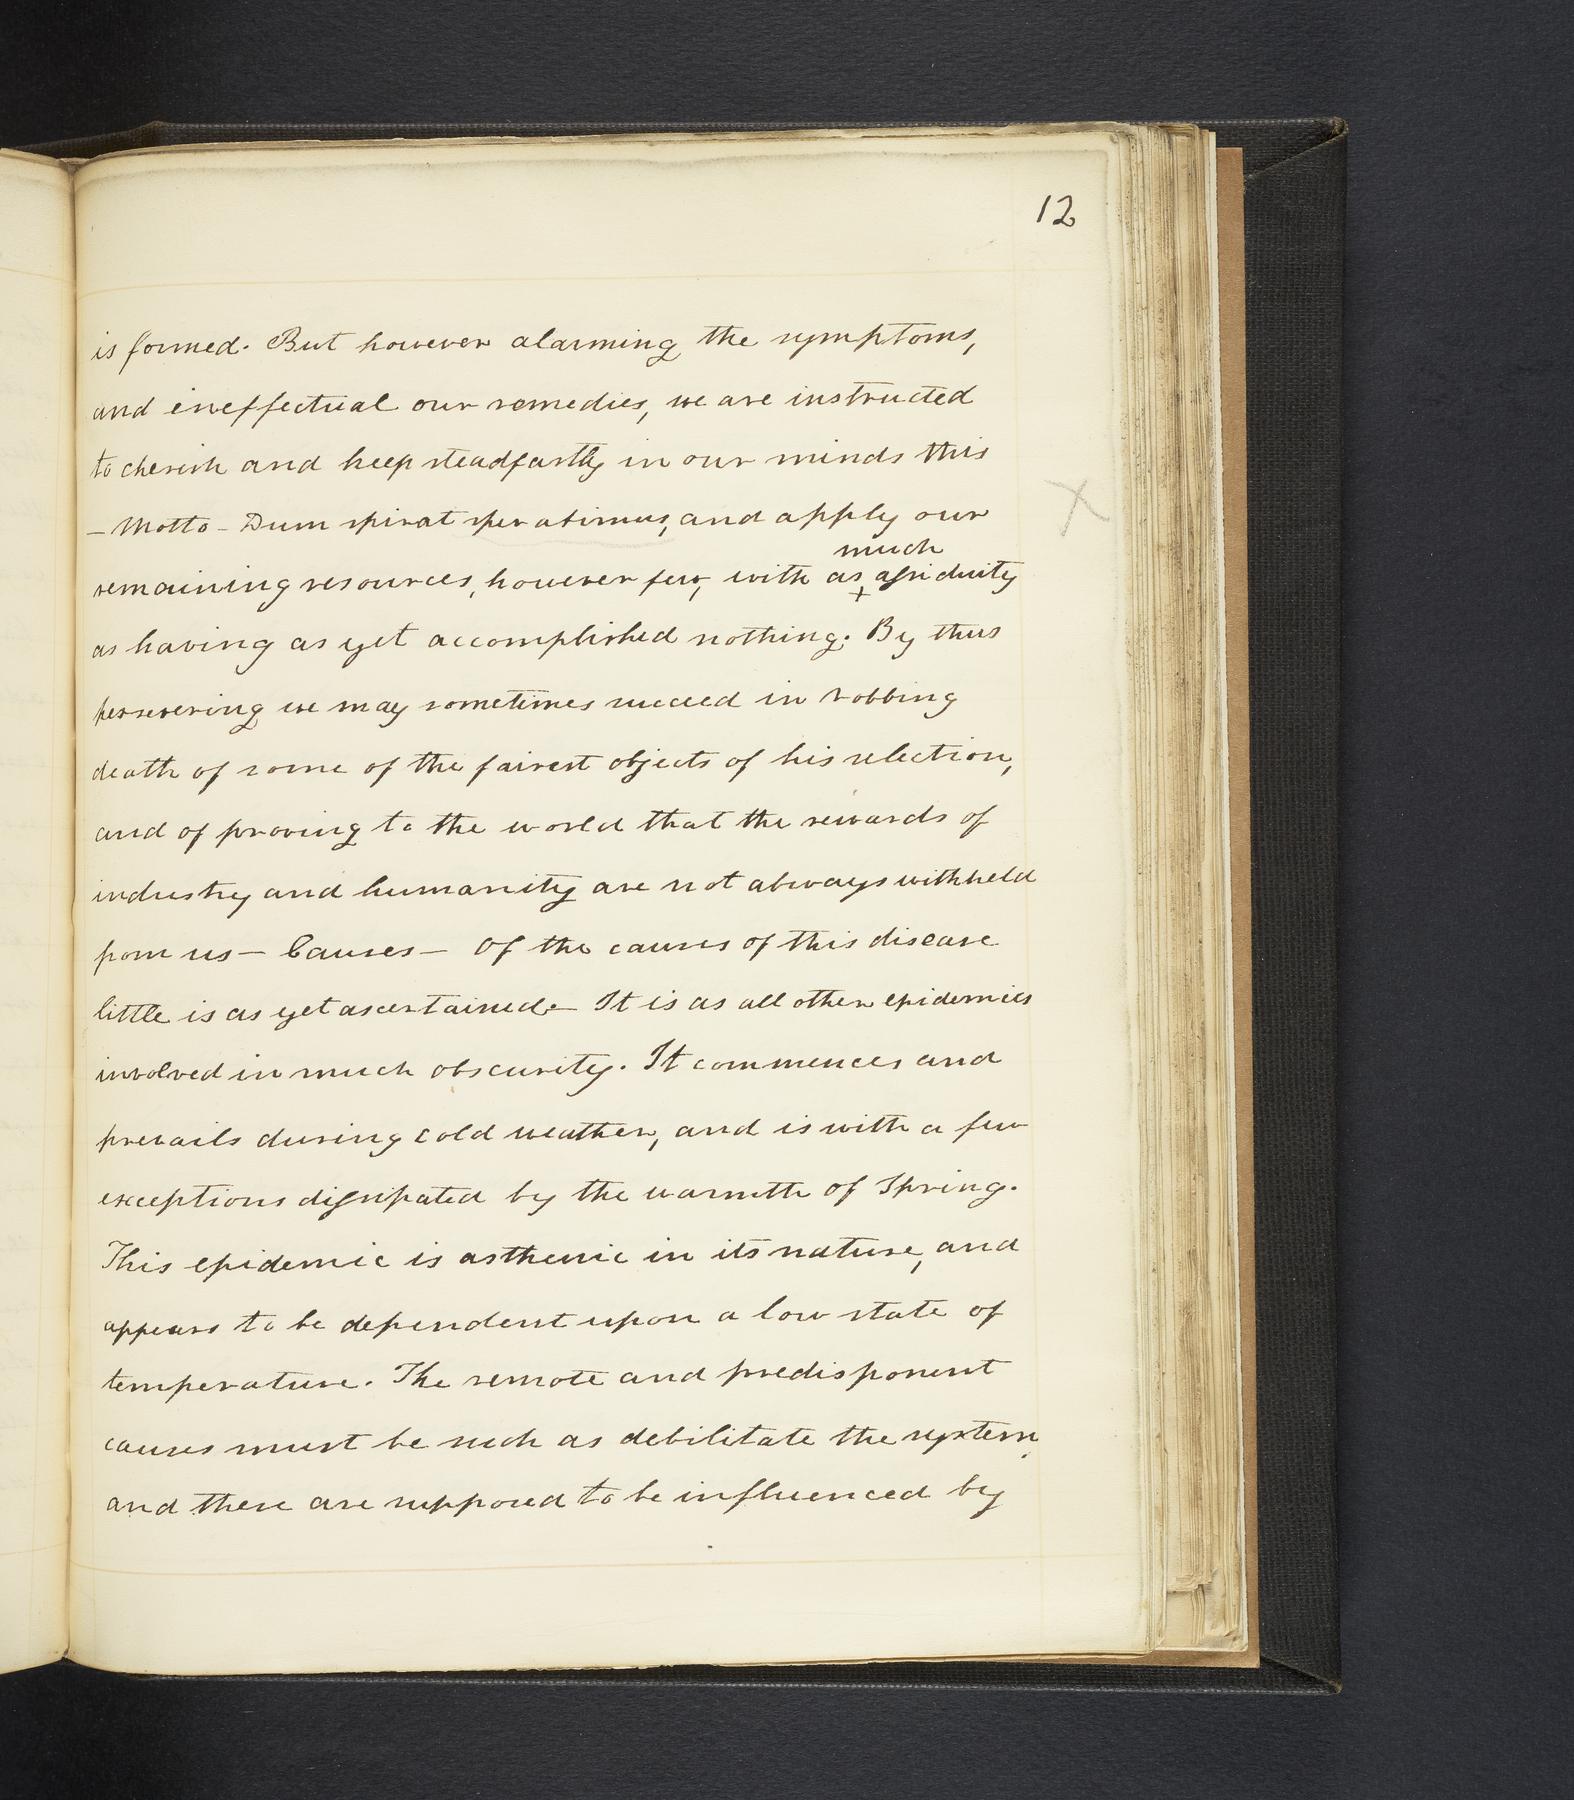 12
is formed. But however alarming the symptoms,
and ineffectual our remedies, we are instructed
to cherish and keep steadfastly in our minds this
– Motto – Dum spirat sperabimus, and apply our
much
remaining resources, however few, with as assiduity
as having as yet accomplished nothing. By thus
persevering we may sometimes succeed in robbing
death of some of the fairest objects of his selection,
and of proving to the world that the rewards of
industry and humanity are not always withheld
from us – Causes – Of the causes of this disease
little is as yet ascertained. – It is as all other epidemics
involved in much obscurity. It commences and
prevails during cold weather, and is with a few
exceptions dissipated by the warmth of Spring.
This epidemic is asthenic in its nature, and
appears to be dependent upon a low state of
temperature. The remote and predisponent
causes must be such as debilitate the system,
and these are supposed to be influenced by